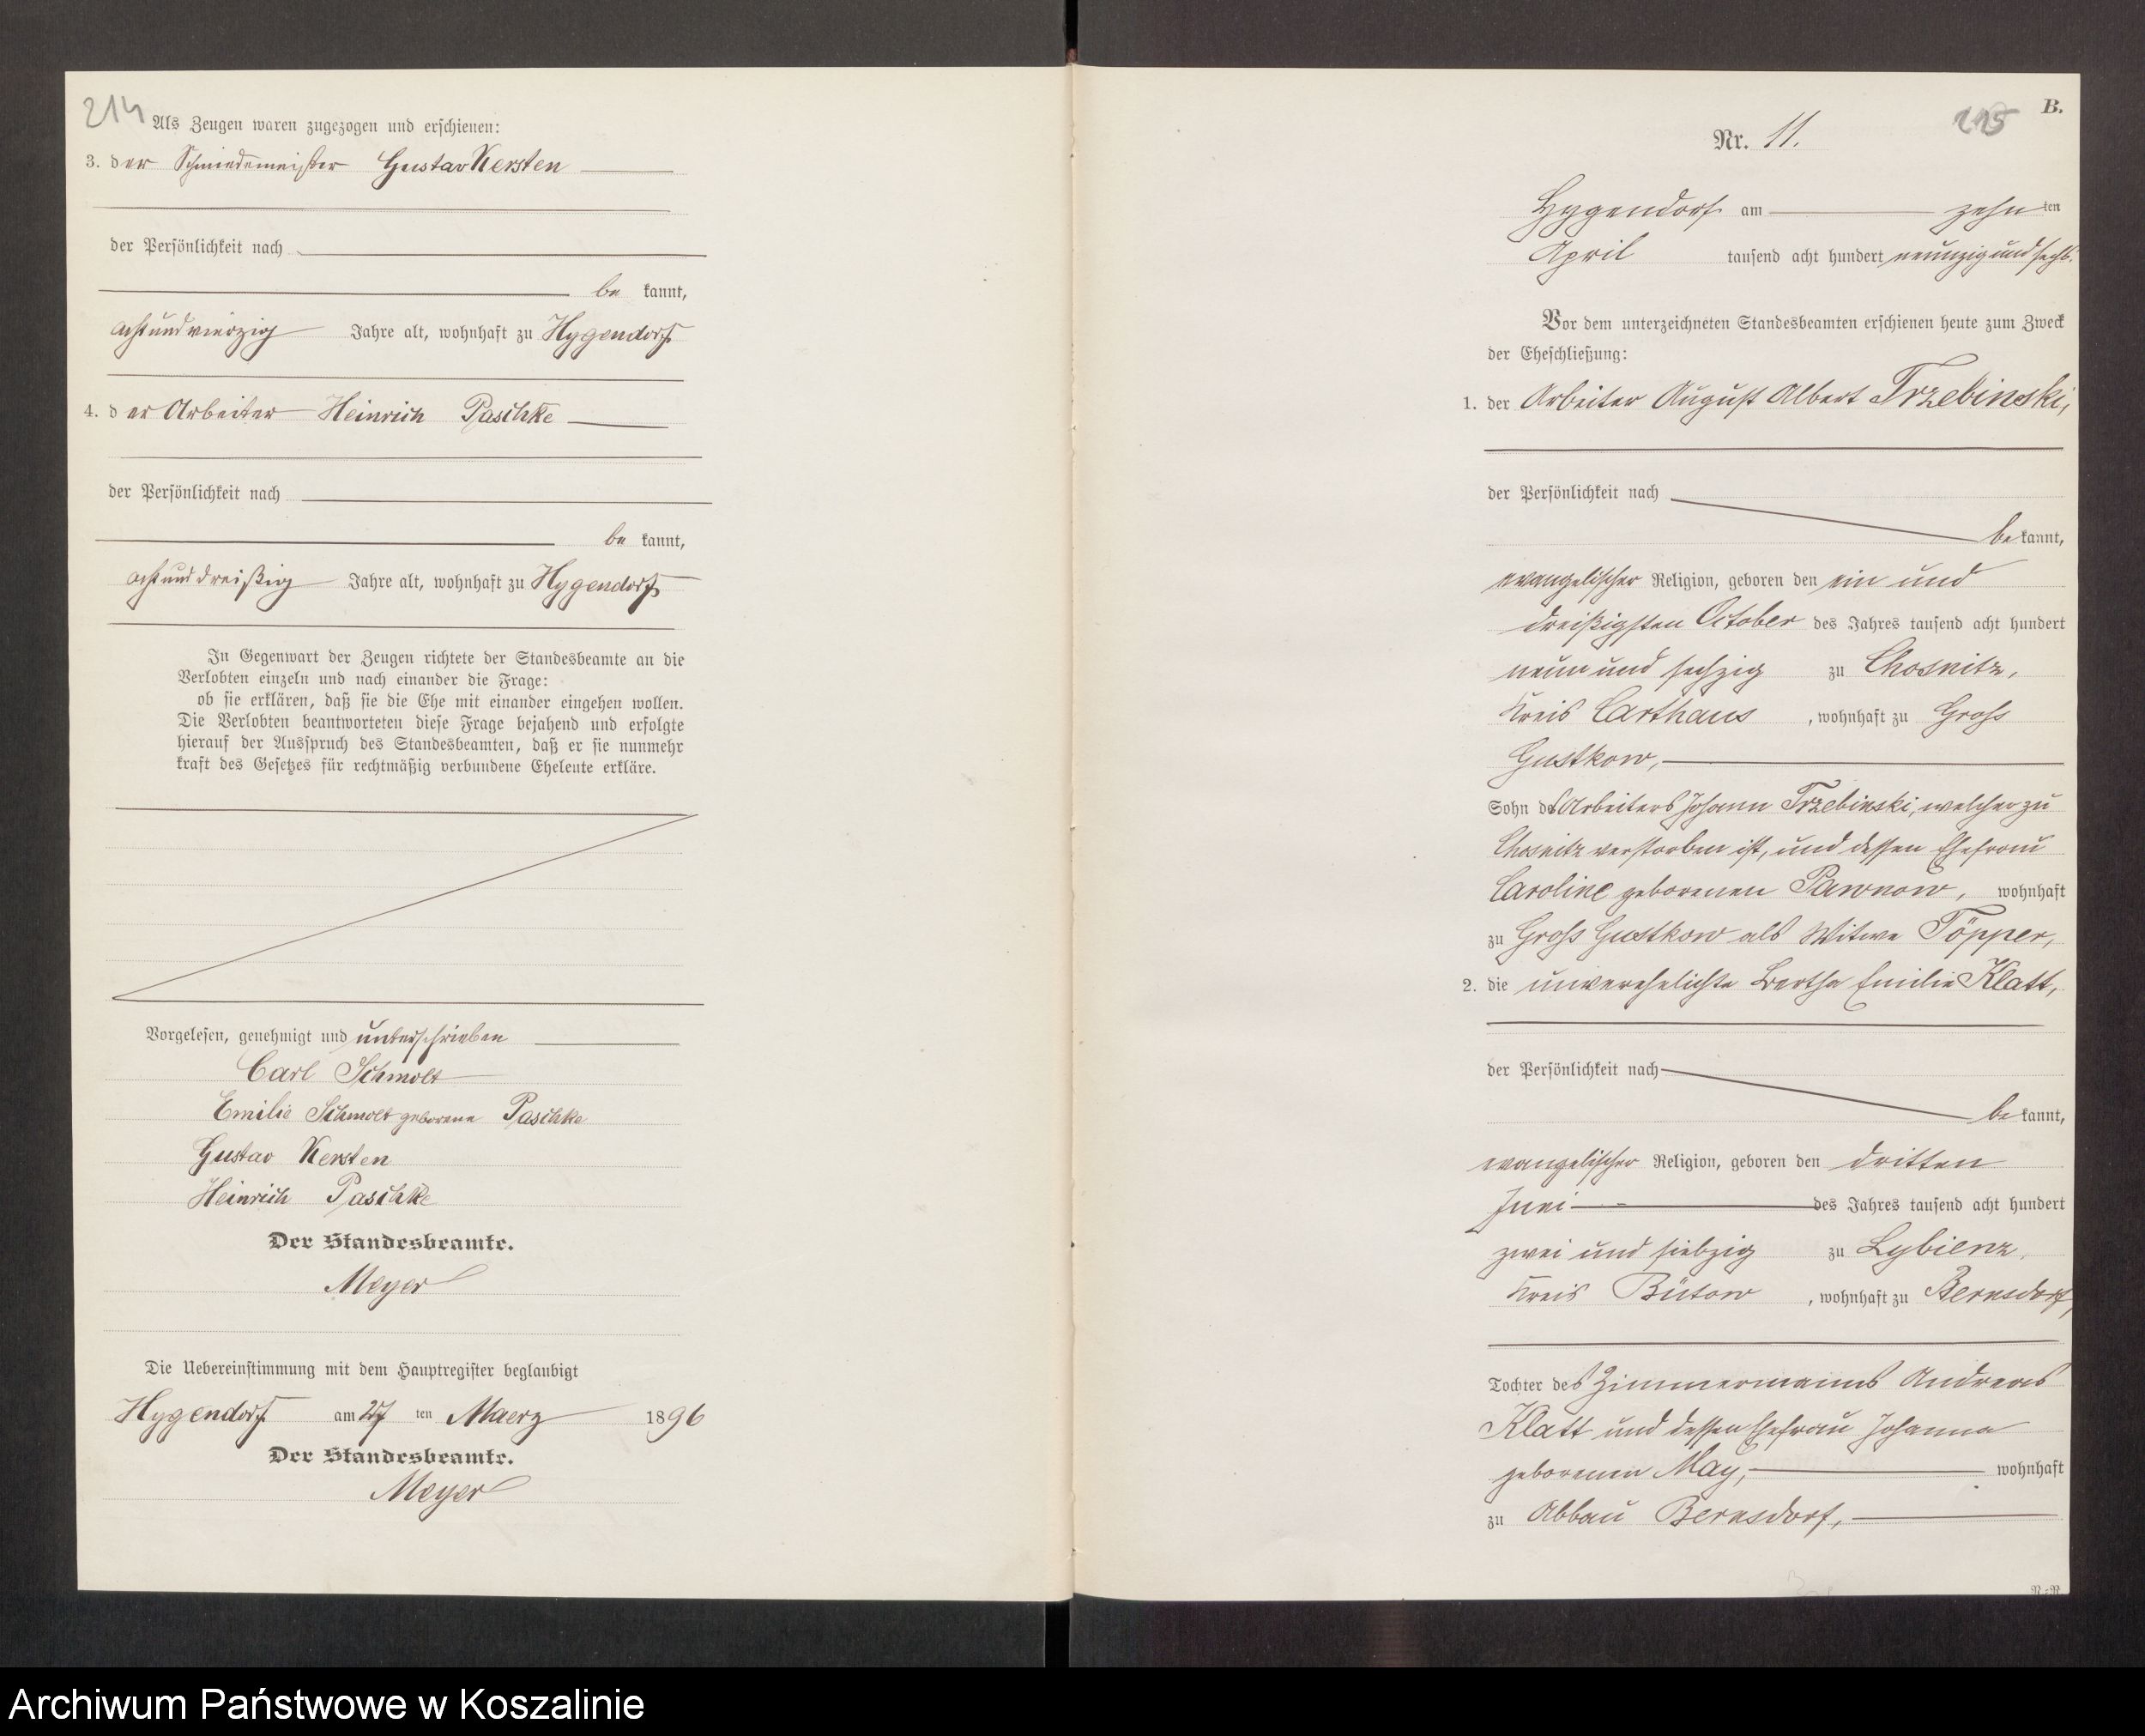 214
Als Zeugen waren zugezogen und erschienen:
3. der Schmiedemeister Gustav Kersten
der Persönlichkeit nach
be kannt,
achtundvierzig Jahre alt, wohnhaft zu Hygendorf
4. der Arbeiter Heinrich Paschke
der Persönlichkeit nach
be kannt,
achtunddreißig Jahre alt, wohnhaft zu Hygendorf
In Gegenwart der Zeugen richtete der Standesbeamte an die
Verlobten einzeln und nach einander die Frage:
ob sie erklären, daß sie die Ehe mit einander eingehen wollen.
Die Verlobten beantworteten diese Frage bejahend und erfolgte
hierauf der Ausspruch des Standesbeamten, daß er sie nunmehr
kraft des Gesetzes für rechtmäßig verbundene Eheleute erkläre.
Vorgelesen, genehmigt und unterschrieben
Carl Schmolt
Emilie Schmolt geborene Paschke
Gustav Kersten
Heinrich Paschke
Der Standesbeamte.
Meyer
Die Uebereinstimmung mit dem Hauptregister beglaubigt
Hygendorf am 27 ten Maerz 1896
Der Standesbeamte.
Meyer
B.
215
Nr. 11.
Hygendorf am zehn ten
April tausend acht hundert neunzig und sechs.
Vor dem unterzeichneten Standesbeamten erschienen heute zum Zweck
der Eheschließung:
1. der Arbeiter August Albert Trzebinski,
der Persönlichkeit nach
be kannt,
evangelischer Religion, geboren den ein und
dreißigsten October des Jahres tausend acht hundert
neun und sechzig zu Chosnitz,
Kreis Carthaus, wohnhaft zu Gross
Gustkow,
Sohn des Arbeiters Johann Trzebinski, welcher zu
Chosnitz verstorben ist, und dessen Ehefrau
Caroline geborenen Pawnow, wohnhaft
zu Gross Gustkow als Witwe Töpper,
2. die unverehelichte Bertha Emilie Klatt,
der Persönlichkeit nach
be kannt,
evangelischer Religion, geboren den dritten
Juni des Jahres tausend acht hundert
zwei und siebzig zu Lybienz,
Kreis Bütow, wohnhaft zu Bernsdorf,
Tochter des Zimmermanns Andreas
Klatt und dessen Ehefrau Johanna
geborenen May, wohnhaft
zu Abbau Bernsdorf,
Archiwum Państwowe w Koszalinie